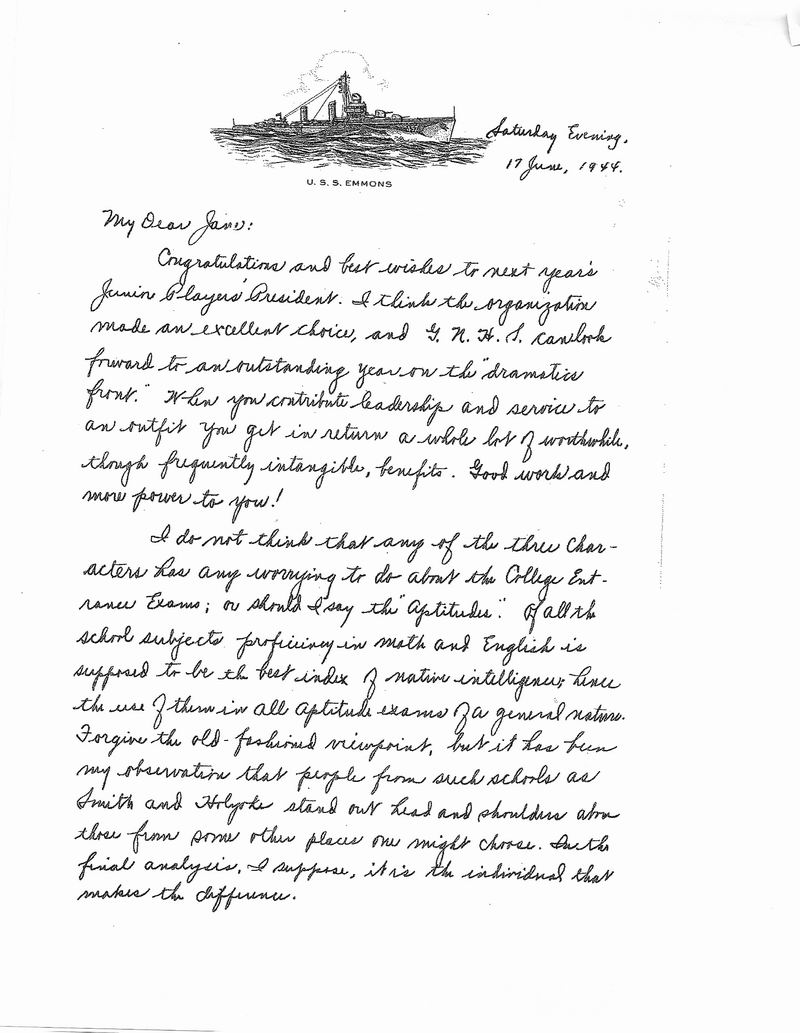 Saturday Evening,
17 June, 1944.
U. S. S. EMMONS
My Dear Jane:
Congratulations and best wishes to next year's
Junior Players' President. I think the organization
made an excellent choice, and G. N. H. S. can look
forward to an outstanding year on the "dramatics
front." When you contribute leadership and service to
an outfit you get in return a whole lot of worthwhile,
though frequently intangible, benefits. Good work and
more power to you!
I do not think that any of the three Char-
acters has any worrying to do about the College Ent-
rance Exams; or should I say the "Aptitudes". Of all the
school subjects proficiency in math and English is
supposed to be the best index of native intelligence; hence
the use of them in all aptitude exams of a general nature.
Forgive the old-fashioned viewpoint, but it has been
my observation that people from such schools as
Smith and Holyoke stand out head and shoulders above
those from some other places one might choose. In the
final analysis, I suppose, it is the individual that
makes the difference.